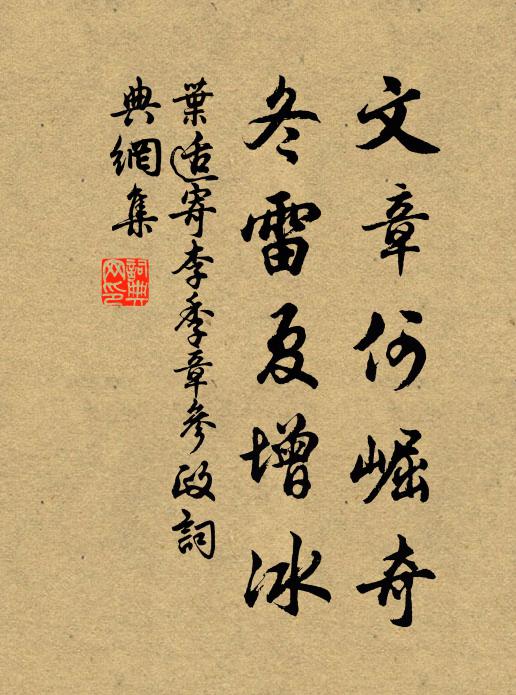 文章何崛奇
冬雷夏增冰
葉适寄李季章參政詞
典網集
詞典
网印